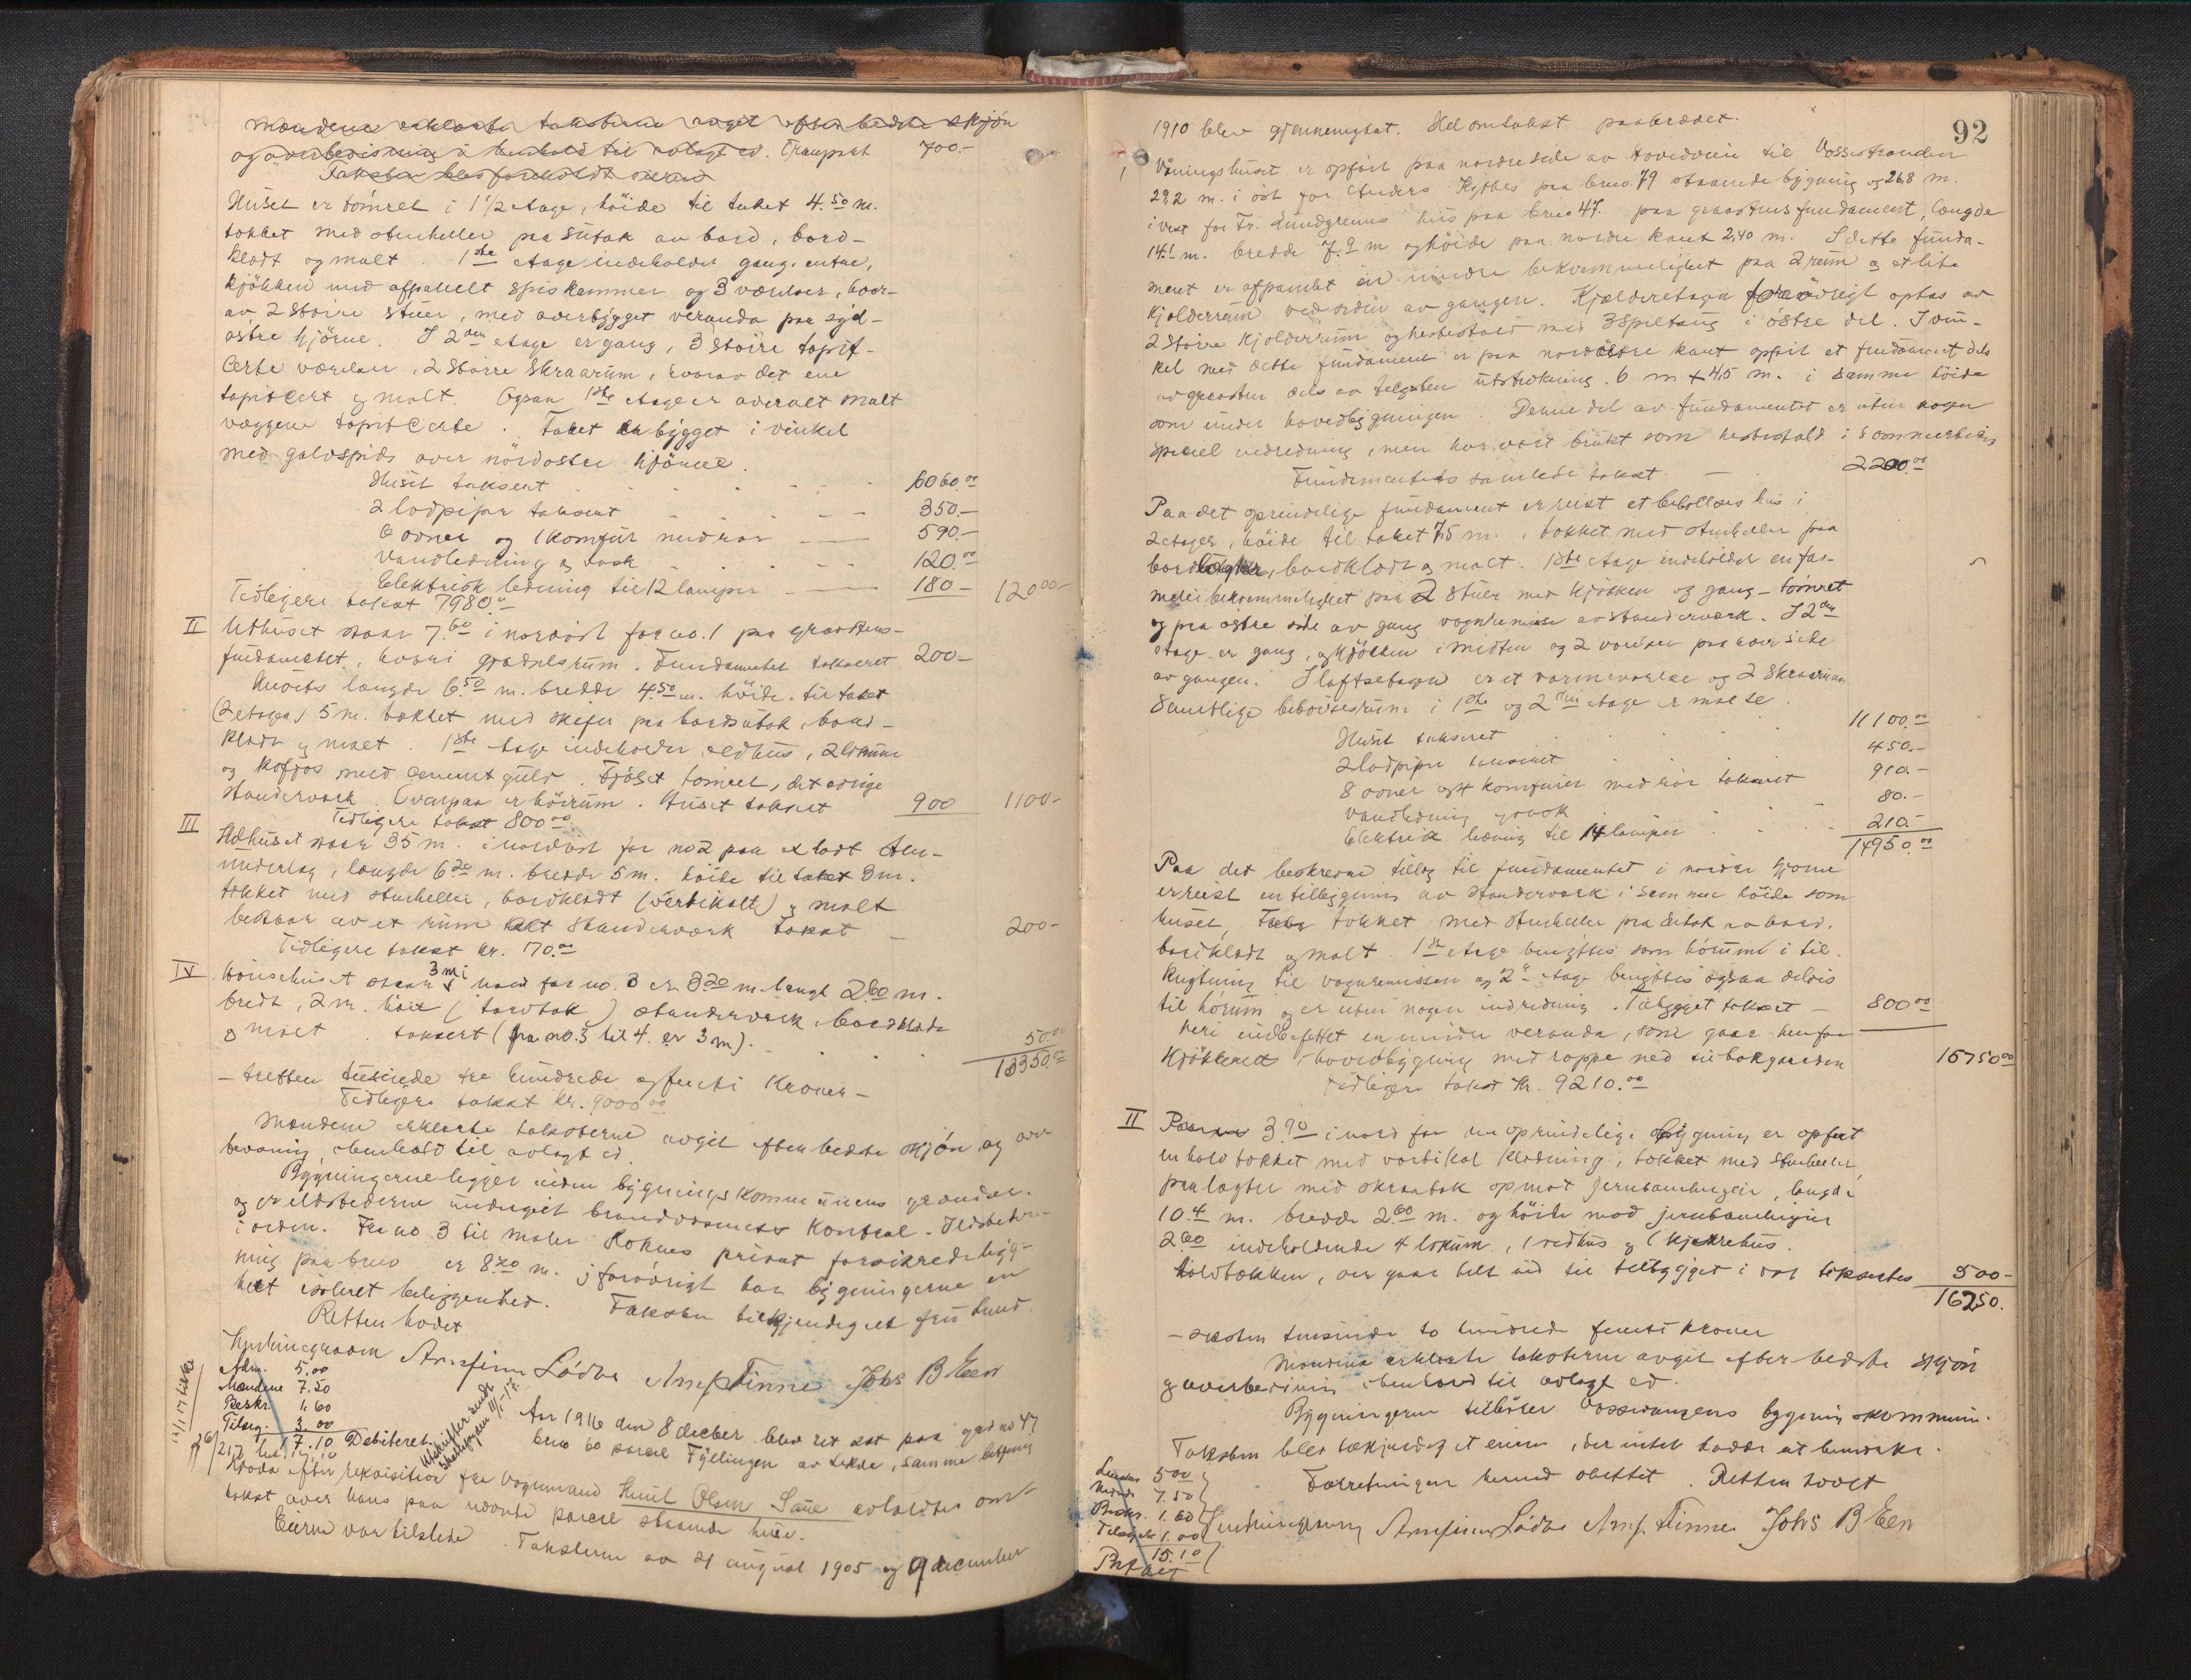 Mændene erklærte taksterne avgit efter bedste skjön
og overbevisning i henhold til avlagt ed. Transport 700.-
Taksten blev foreholdt
Huset er tömret i 1 1/2 etage, höide til taket 4.50 m.
tækket med stenheller paa sutak av bord, bord-
klædt og malt. 1ste etage indeholder gang, entre,
kjökken med afpanelt spiskammer og 3 værelser, hvor-
av 2 större stuer, med overbygget veranda paa syd-
östre hjörne. I 2den etage er gang, 3 större tapit-
certe værelser, 2 större skraarum, hvorav det ene
tapitcert og malt. Ogsaa 1ste etage er overalt malt
væggene tapitcerte. Taket er bygget i vinkel
med gavlspids over nordöstre hjörne.
Huset taksert 6060.00
2 lodpiper taksert 350.-
6 ovner og 1 komfur med rör 590.-
Vandledning og vask 120.00
Elektrisk ledning til 12 lamper 180 - 12000-
Tidligere takst 7980.-
II Uthuset staar 7.60 i nordöst for no. 1 paa graastens-
fundament, hvori grönsaksrum. Fundamentet taksert 200-
Husets længde 6.50 m. bredde 4.50 m. höide til taket
(2 etager) 5 m. tækket med skifer paa bordsutak, bord-
klædt og malt. 1ste etage indeholder, eldhus, 2 lokum
og kofjös med cementgulv. Fjöset tömret, det övrige
standerverk. Ovenpaa er höirum. Huset taksert 900 1100-
Tidligere takst 800.00
III Uthuset staar 35 m. i nordöst for no 2 paa et lavt sten-
underlag, længde 6.20 m. bredde 5 m. höide til taket 3 m.
tækket med stenheller, bordklædt (vertikalt) og malt
bestaar av et rum alt standerverk takst - 200-
Tidligere takst kr. 70.00
IV Hönsehuset staar 3 m i nord for no. 3 er 3.20 m. langt 2.60 m.
bredt, 2 m. höit (tordtak) standerverk, bordklædt
og malt. taksert (fra no. 3 til 4. er 3 m). 50.00
13350.00
- tretten tusinde tre hundrede og femti Kroner -
Tidligere takst kr. 9000.00
Mændene erklærte taksterne avgit efter bedste skjön og over-
bevisning i henhold til avlagt ed.
Bygningerne ligger inden bygningskommunens grændser
og er ildstederne undergit brandvæsenets kontrol. Ildstederne
i orden. Fra no 3 til maler Roknes privat forsikrede byg-
ning paa bruo er 8.20 m. I forövrigt har bygningerne en
helt isoleret beliggenhed. Taksten tilkjendegit fru Lund.
Retten hævet
Arnfinn Lödve Arnf Finne Johs B Eeen
Adm. 5.00
Mændene 7.50
Beskr. 1.60
Tilsyn. 3.00
17.10 Debiteret.
Utskrifter sendt
Aar 1916 den 8 decber. blev ret sat paa gard no 47
bruo 60 parcel Fyllingen av Lekve, samme betjening
efter rekvisition fra vognmand Knut Olsen Saue avholdtes om-
takst over hans paa nævnte parcel staaende huse.
Eieren var tilstede. Taksterne av 21 august 1905 og 9 december
92
1910 blev gjennemgaat. Hel omtakst paabegyndt.
1 Vaaningshuset er opfört paa nordre side av Hovedveien til Vossestranden
29,2 m. i öst for Anders Kytbes paa bruo. 79 staaende bygning og 26,8 m.
i vest for Fr. Lundgrens hus paa bruo 47. paa graastensfundament, længde
14.1 m. bredde 7.9 m og höide paa nordre kant 2,40 m. I dette funda-
ment er afpanelt en mindre bekvemmelighet paa 2 rum og et lite
kjelderrum ved siden av gangen. Kjælderetagen forövrigt optas av
2 större kjelderrum og hestestald med 3 spiltaug i östre del. I vin-
kel med dette fundament er paa nordöstre kant opfört et fundament dels
av graasten dels av teglsten utstrækning. 6 m x 4,5 m. i samme höide
som under hovedbygningen. Denne del av fundamentet er uten nogen
speciel indredning, men har vært brukt som hestestald i sommertiden
Fundamentets samlede takst - 2200.00
Paa det oprindelige fundament er reist et beboelseshus i
2 etager, höide til taket 7,5 m., tækket med stenheller paa
bordlægter, bordklædt og malt. 1ste etage indeholder en fa-
miliebekvemmelighet paa 2 stuer med kjökken og gang - tömret
og paa östre side av gang vognremise av standerverk. I 2den
etage er gang, og kjökken i midten og 2 værelser paa hver side
av gangen. I loftsetagen er et varmeværelse og 2 skraarum
Samtlige beboelsesrum i 1ste og 2den etage er malte.
Huset taksert 11100.00
2 lodpiper taksert 450.-
8 ovner og 4 komfurer med rör taksert 910.-
Vandledning og vask 80.-
Elektrisk ledning til 14 lamper 210.-
14950.00
Paa det beskrevne tillæg til fundamentet i nordre hjörne
er reist en tilbygning av standerverk i samme höide som
huset, tækket med stenheller paa sutak av bord.
bordklædt og malt. 1ste etage benyttes som hörum i til-
knytning til vognremissen og 2den etage benyttes ogsaa delvis
til hörum og er uten nogen indredning. Tilbygget taksert - 800.00
heri indbefattet en mindre veranda, som gaar henfor
kjökkenet i hovedbygning med trappe ned til bakgaarden 15750.00
Tidligere takst kr. 9210.00
II 3.90 i nord for den oprindelige bygning er opfört
en med vertikal klædning, tækket med stenheller
paa lægter med skraatak opmot jernbanelinjen, længde
10.4 m. bredde 2.60 m. og höide mod jernbanelinjen
2.60 indeholdende 4 lokum, 1 vedhus og 1 kjerrehus.
der gaar helt ind til tilbygget i vest taksertes 500-
16250.
- seksten tusinde to hundrede femti kroner
Mændene erklærte taksterne avgit efter bedste skjön
og overbevisning i henhold til avlagt ed.
Bygningerne tilhörer Vossevangens bygningskommune.
Taksten blev bekjendtgjort eieren, der intet hadde at bemerke.
Forretningen hermed sluttet. Retten hævet
5.00
7.50
Beskr. 1.60
Tilsyn 1.00
15.10
Arnfinn Lödve Arnf. Finne Johs B Eeen